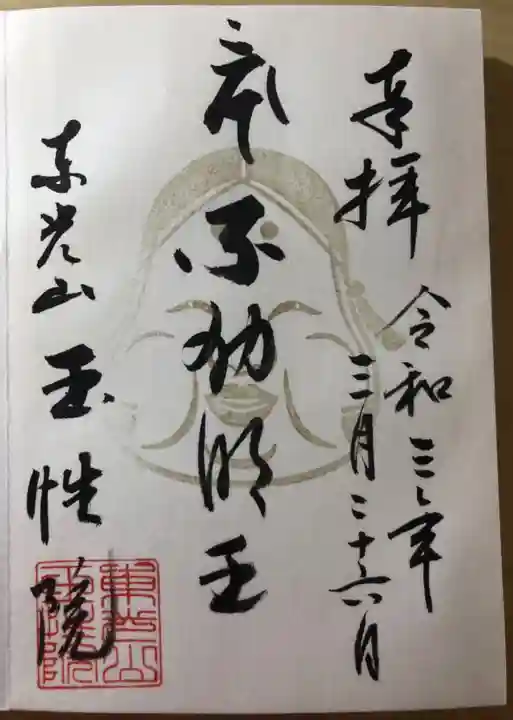 奉拝
令和三年
三月二十六日
不動明王
東光山 玉性院